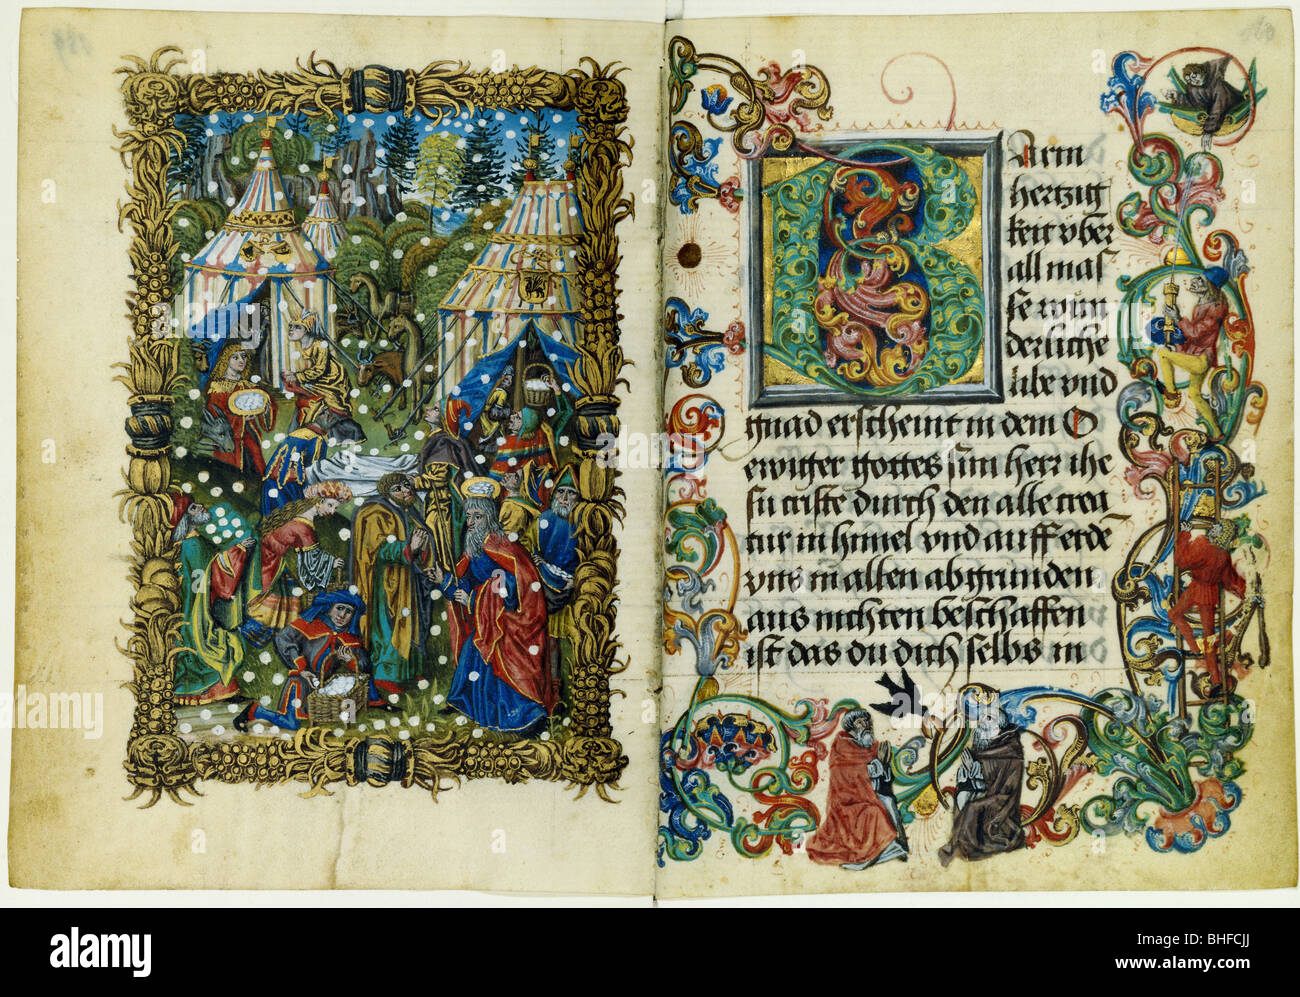 Barm
hertzig
keit vber
all mas
se wun
derliche
libe vnd
gnad erscheint in dem O
ewiger gottes sun herr ihe
su criste durch den alle crea
tur in himel vnd auff erdē
vnd in allen abgrunden
aus nichten beschaffen
ist das du dich selbs in
alamy
Image ID: BHFCJJ
www.alamy.com